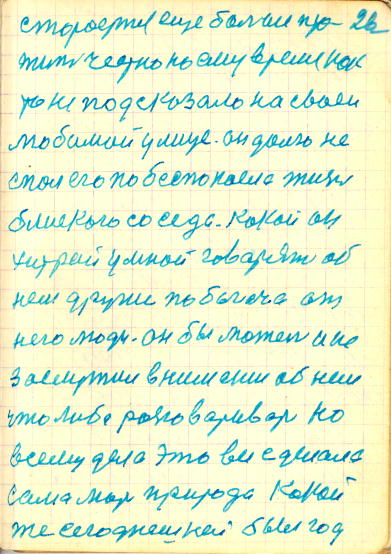 стороерил еще болми про- 26
жит честно но ему время как
то не подсказало на своеи
любимой улице. он долго не
спал его по беспокоела жизн
блиского соседа. Какой он
хитрай умной говарят об
нем други побыгоча от
него люди. он бы может и не
заслужил внимании об нем
что либо розговаривар но
всему дела это все сделала
сама мар природа Какой
же сегоднешней был год